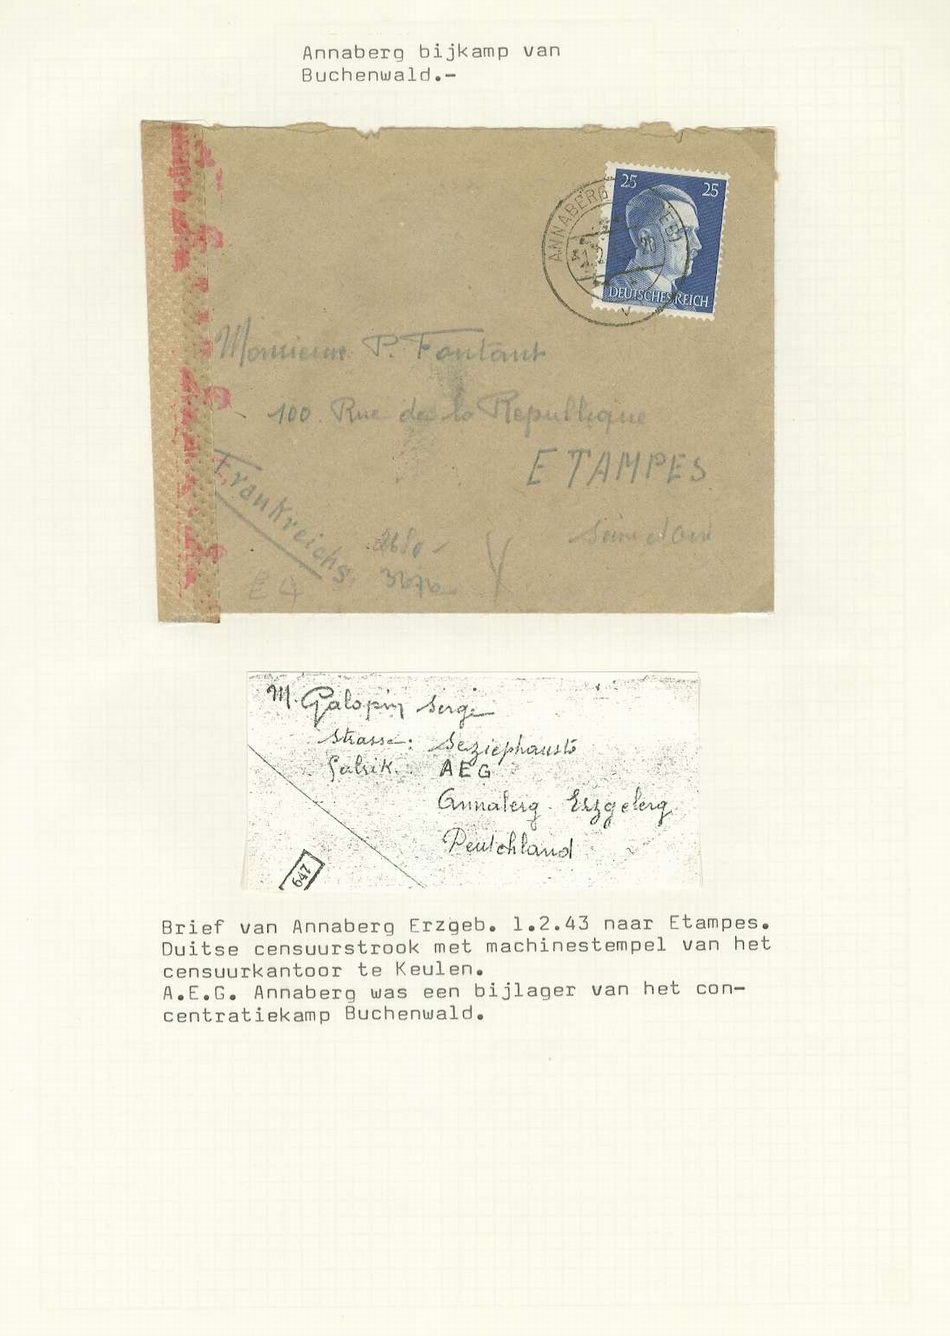 Annaberg bijkamp van
Buchenwald.-
25 25
ANNABERG
DEUTSCHES REICH
Monsieur P. Fontant
100 Rue de la Republique
ETAMPES
Frankreichs
3676
E4
M. Galopin Serge
Strasse:
Fabrik. AEG
Annaberg - Erzgeberg
Deutchland
647
Brief van Annaberg Erzgeb. 1.2.43 naar Etampes.
Duitse censuurstrook met machinestempel van het
censuurkantoor te Keulen.
A.E.G. Annaberg was een bijlager van het con-
centratiekamp Buchenwald.